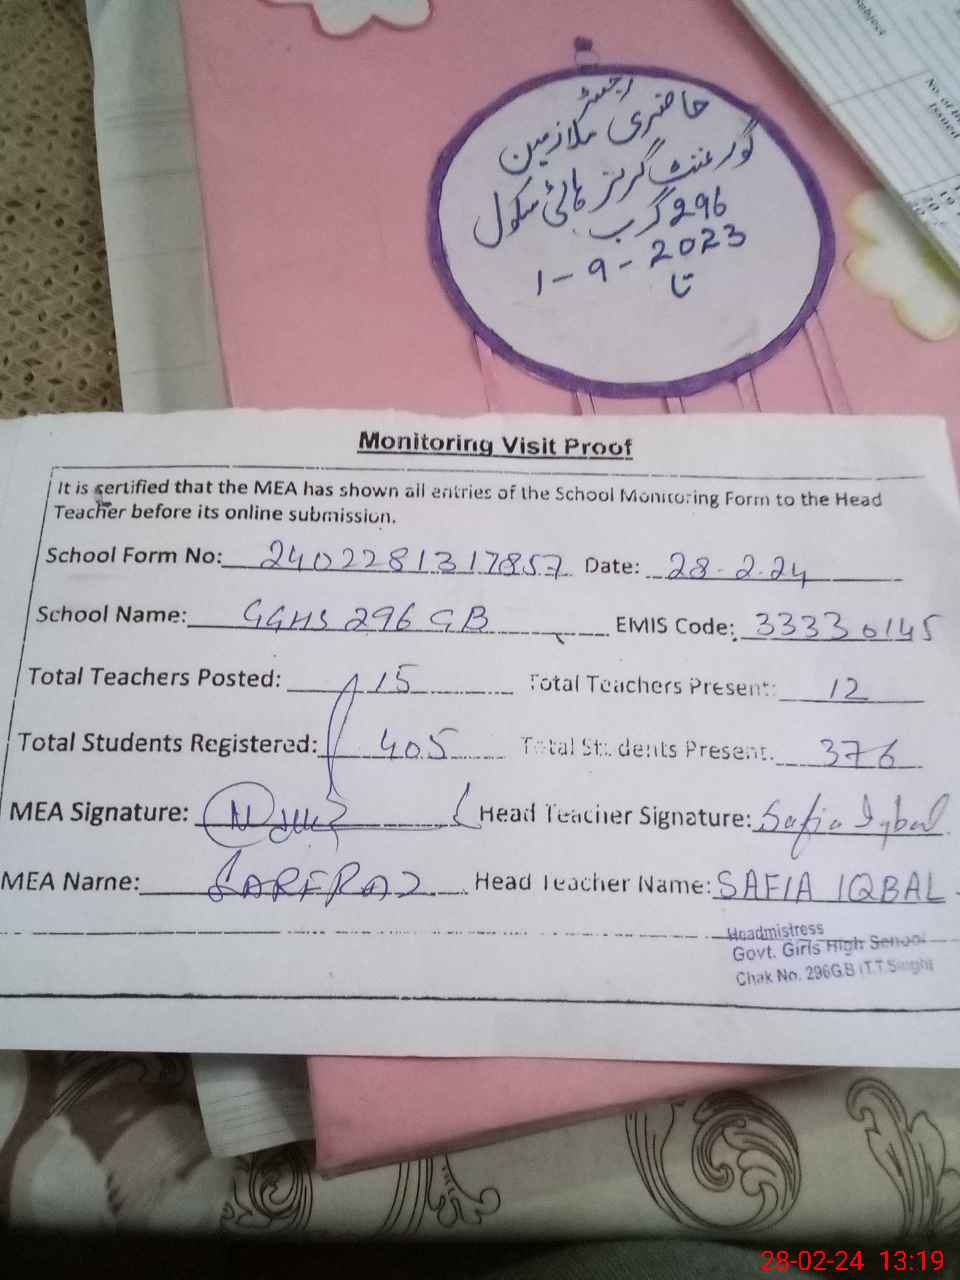 رجسٹر
حاضری ملازمین
گورنمنٹ گرلز ہائی سکول
296 گ ب
1-9-2023
تا
Subject
No. of
Issued
Monitoring Visit Proof
It is certified that the MEA has shown all entries of the School Monitoring Form to the Head
Teacher before its online submission.
School Form No: 2402281317857 Date: 28-2-24
School Name: GGHS 296 GB EMIS Code: 33330145
Total Teachers Posted: 15 Total Teachers Present: 12
Total Students Registered: 405 Total Students Present: 376
MEA Signature: Head Teacher Signature: Safia Iqbal
MEA Name: SARFRAZ Head Teacher Name: SAFIA IQBAL
Headmistress
Govt. Girls High School
Chak No. 296G.B (T.T.Singh)
28-02-24 13:19